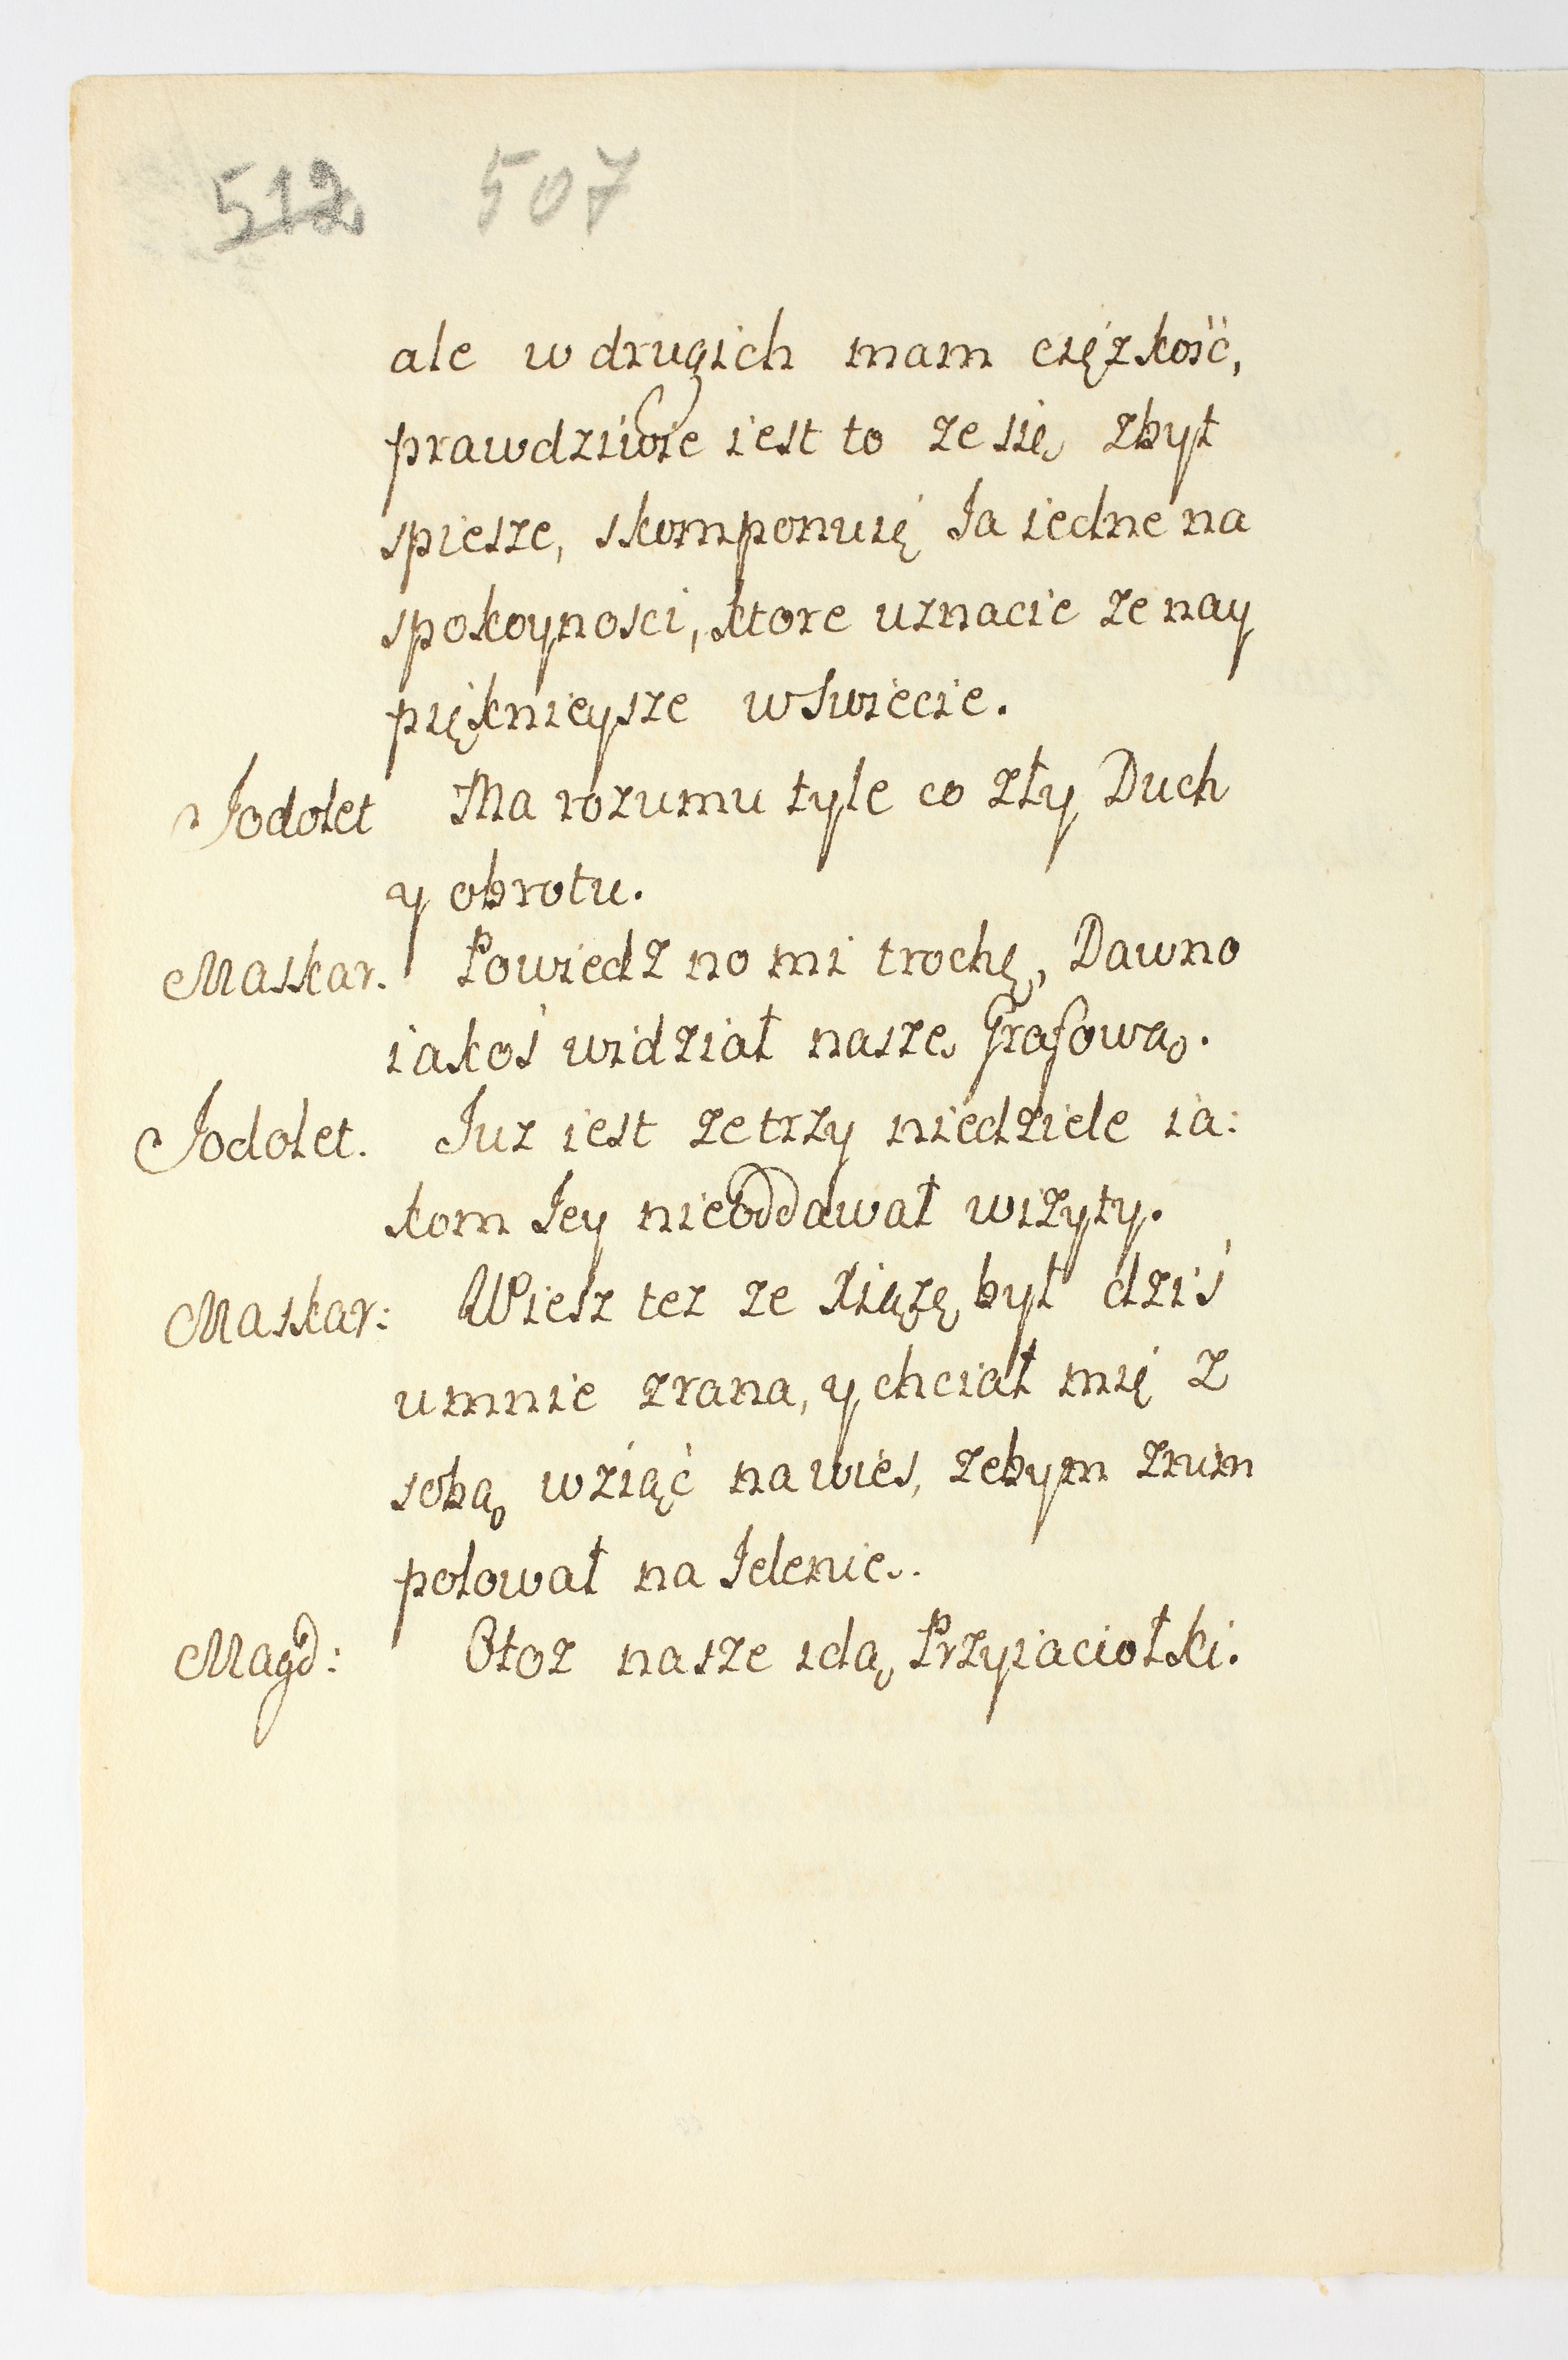 512 507
ale w drugich mam ciężkość,
prawdziwie iest to ze się zbyt
spiesze, skomponuię Ja iedne na
spokoynosci, ktore uznacie ze nay
pięknieysze w Swiecie.
Jodolet Ma rozumu tyle co zły Duch
y obrotu.
Maskar. Powiedz no mi trochę, Dawno
iakoś widział naszę Grafową.
Jodolet. Juz iest ze trzy niedziele ia:
kom Jey nieoddawał wizyty.
Maskar: Wiesz tez ze Xiążę był dziś
umnie zrana, y chciał mię z
sobą wziąć na wieś, zebym znim
polował na Jelenie..
Magd: Otoz nasze idą Przyiaciołki.